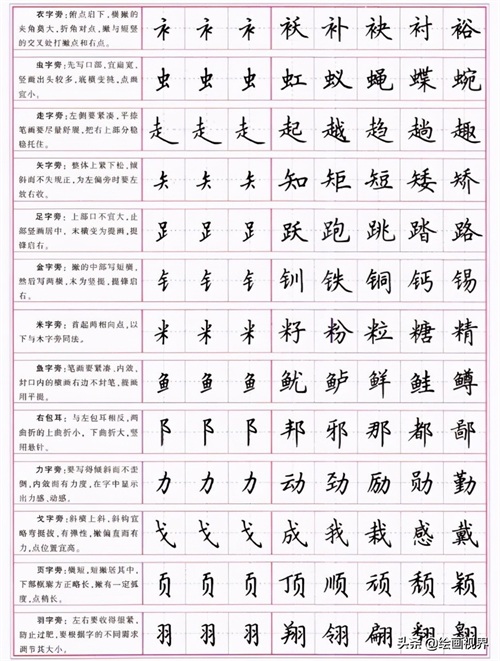 衣字旁：俯点启下，横撇的
夹角莫大，折角对点，撇与短竖
的交叉处打撇点和右点。
衤 衤 衤 袄 补 袂 衬 裕
虫字旁：先写口部，宜扁宽，
竖画出头较多，底横变挑，点画
宜小。
虫 虫 虫 虹 蚁 蝇 蝶 蜿
走字旁：左侧要紧凑，平捺
笔画要尽量舒展，把右上部分稳
稳托住。
走 走 走 起 越 趋 趟 趣
矢字旁：整体上紧下松，倾
斜而不失规正，为左偏旁时要左
放右收。
矢 矢 矢 知 矩 短 矮 矫
足字旁：上部口不宜大，止
部竖画居中，末横变为提画，提
锋启右。
𧾷 𧾷 𧾷 跃 跑 跳 踏 路
金字旁：撇的中部写短横，
然后写两横，末为竖提，提锋启
右。
钅 钅 钅 钏 铁 铜 钙 锡
米字旁：首起两相向点，以
下与木字旁同法。
米 米 米 籽 粉 粒 糖 精
鱼字旁：笔画要紧凑、内敛，
封口内的横画右边不封笔，提画
用平提。
鱼 鱼 鱼 鱿 鲈 鲜 鲑 鳟
右包耳：与左包耳相反，两
曲折的上曲折小，下曲折大，竖
用悬针。
阝 阝 阝 邦 邪 那 都 鄙
力字旁：要写得倾斜而不歪
倒，内敛而有力度，在字中显示
出力感、动感。
力 力 力 动 劲 励 勋 勤
戈字旁：斜横上斜，斜钩宜
略弯挺拔，有弹性，撇偏直而有
力，点位置宜高。
戈 戈 戈 成 我 栽 感 戴
页字旁：横短，短撇居其中，
下部框廓方正略长，撇有一定弧
度，点稍长。
页 页 页 顶 顺 顽 颓 颖
羽字旁：左右要收得很紧，
防止过肥，要根据字的不同需求
调节其大小。
羽 羽 羽 翔 翎 翩 翻 翱
头条@绘画视界